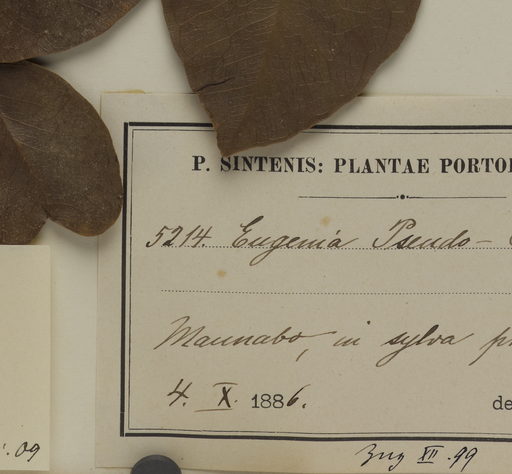 P. SINTENIS: PLANTAE PORTO
5214. Eugenia Pseudo-
Maunabo, in sylva
4. X. 1886. de
XII. 99
. 09